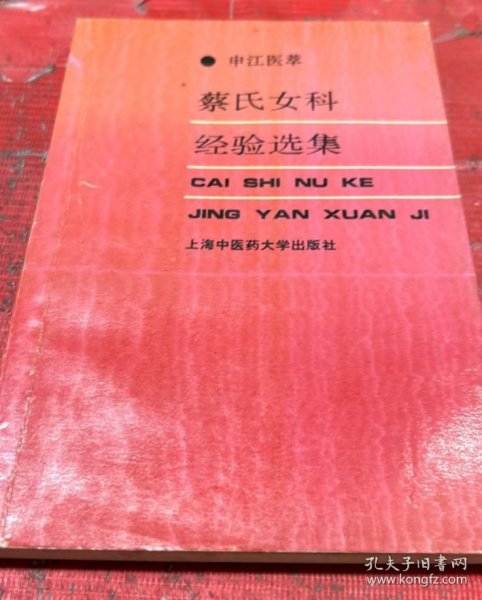 ● 申江医萃
蔡氏女科
经验选集
CAI SHI NU KE
JING YAN XUAN JI
上海中医药大学出版社
孔夫子旧书网
www.kongfz.com